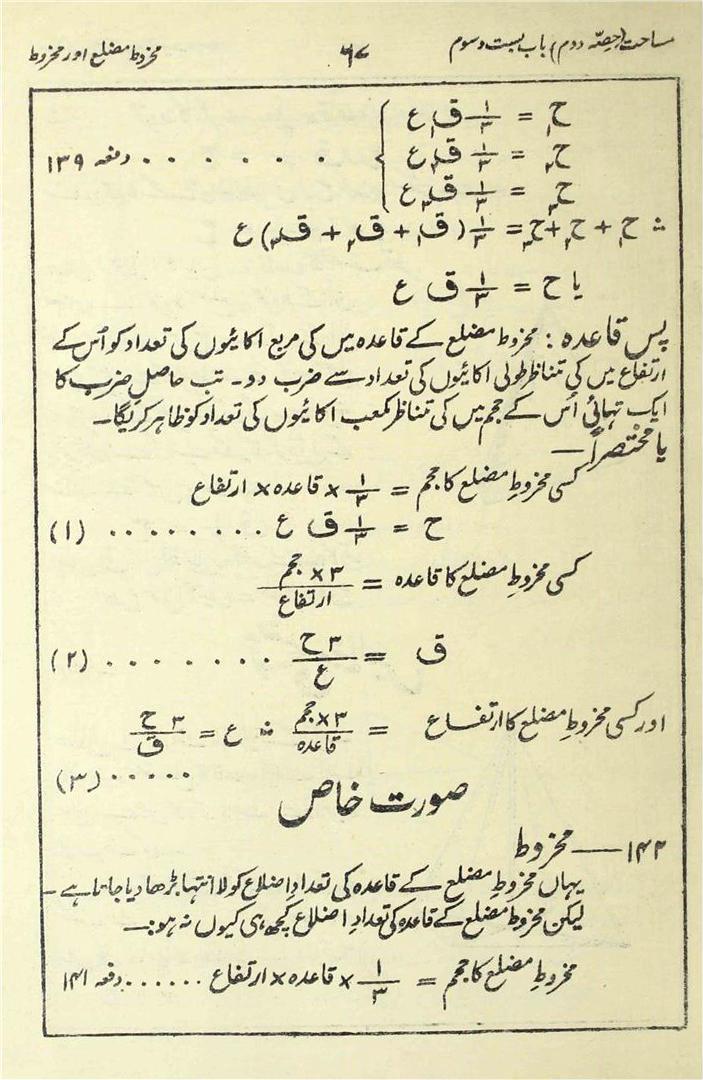 مساحت (حصّہ دوم) باب بست و سوم ۶۷ مخروط مضلع اور مخروط
ح₁ = ۱/۳ ق₁ ع
ح₂ = ۱/۳ ق₂ ع } . . . . . . . دفعہ ۱۳۹
ح₃ = ۱/۳ ق₃ ع
∴ ح₁ + ح₂ + ح₃ = ۱/۳ (ق₁ + ق₂ + ق₃) ع
یا ح = ۱/۳ ق ع
پس قاعدہ : مخروط مضلع کے قاعدہ میں کی مربع اکائیوں کی تعداد کو اُس کے
ارتفاع میں کی تناظر طولی اکائیوں کی تعداد سے ضرب دو۔ تب حاصلِ ضرب کا
ایک تہائی اُس کے حجم میں کی تناظر مکعب اکائیوں کی تعداد کو ظاہر کریگا۔
یا مختصراً —
کسی مخروطِ مضلع کا حجم = ۱/۳ × قاعدہ × ارتفاع
ح = ۱/۳ ق ع . . . . . . . . (۱)
کسی مخروطِ مضلع کا قاعدہ = ۳ × حجم / ارتفاع
ق = ۳ ح / ع . . . . . . . . (۲)
اور کسی مخروطِ مضلع کا ارتفاع = ۳ × حجم / قاعدہ ∴ ع = ۳ ح / ق
. . . . . (۳)
صورت خاص
۱۴۲ — مخروط
یہاں مخروطِ مضلع کے قاعدہ کی تعدادِ اضلاع کو لا انتہا بڑھا دیا جاتا ہے —
لیکن مخروط مضلع کے قاعدہ کی تعدادِ اضلاع کچھ ہی کیوں نہ ہو:—
مخروطِ مضلع کا حجم = ۱/۳ × قاعدہ × ارتفاع . . . . . . دفعہ ۱۴۱